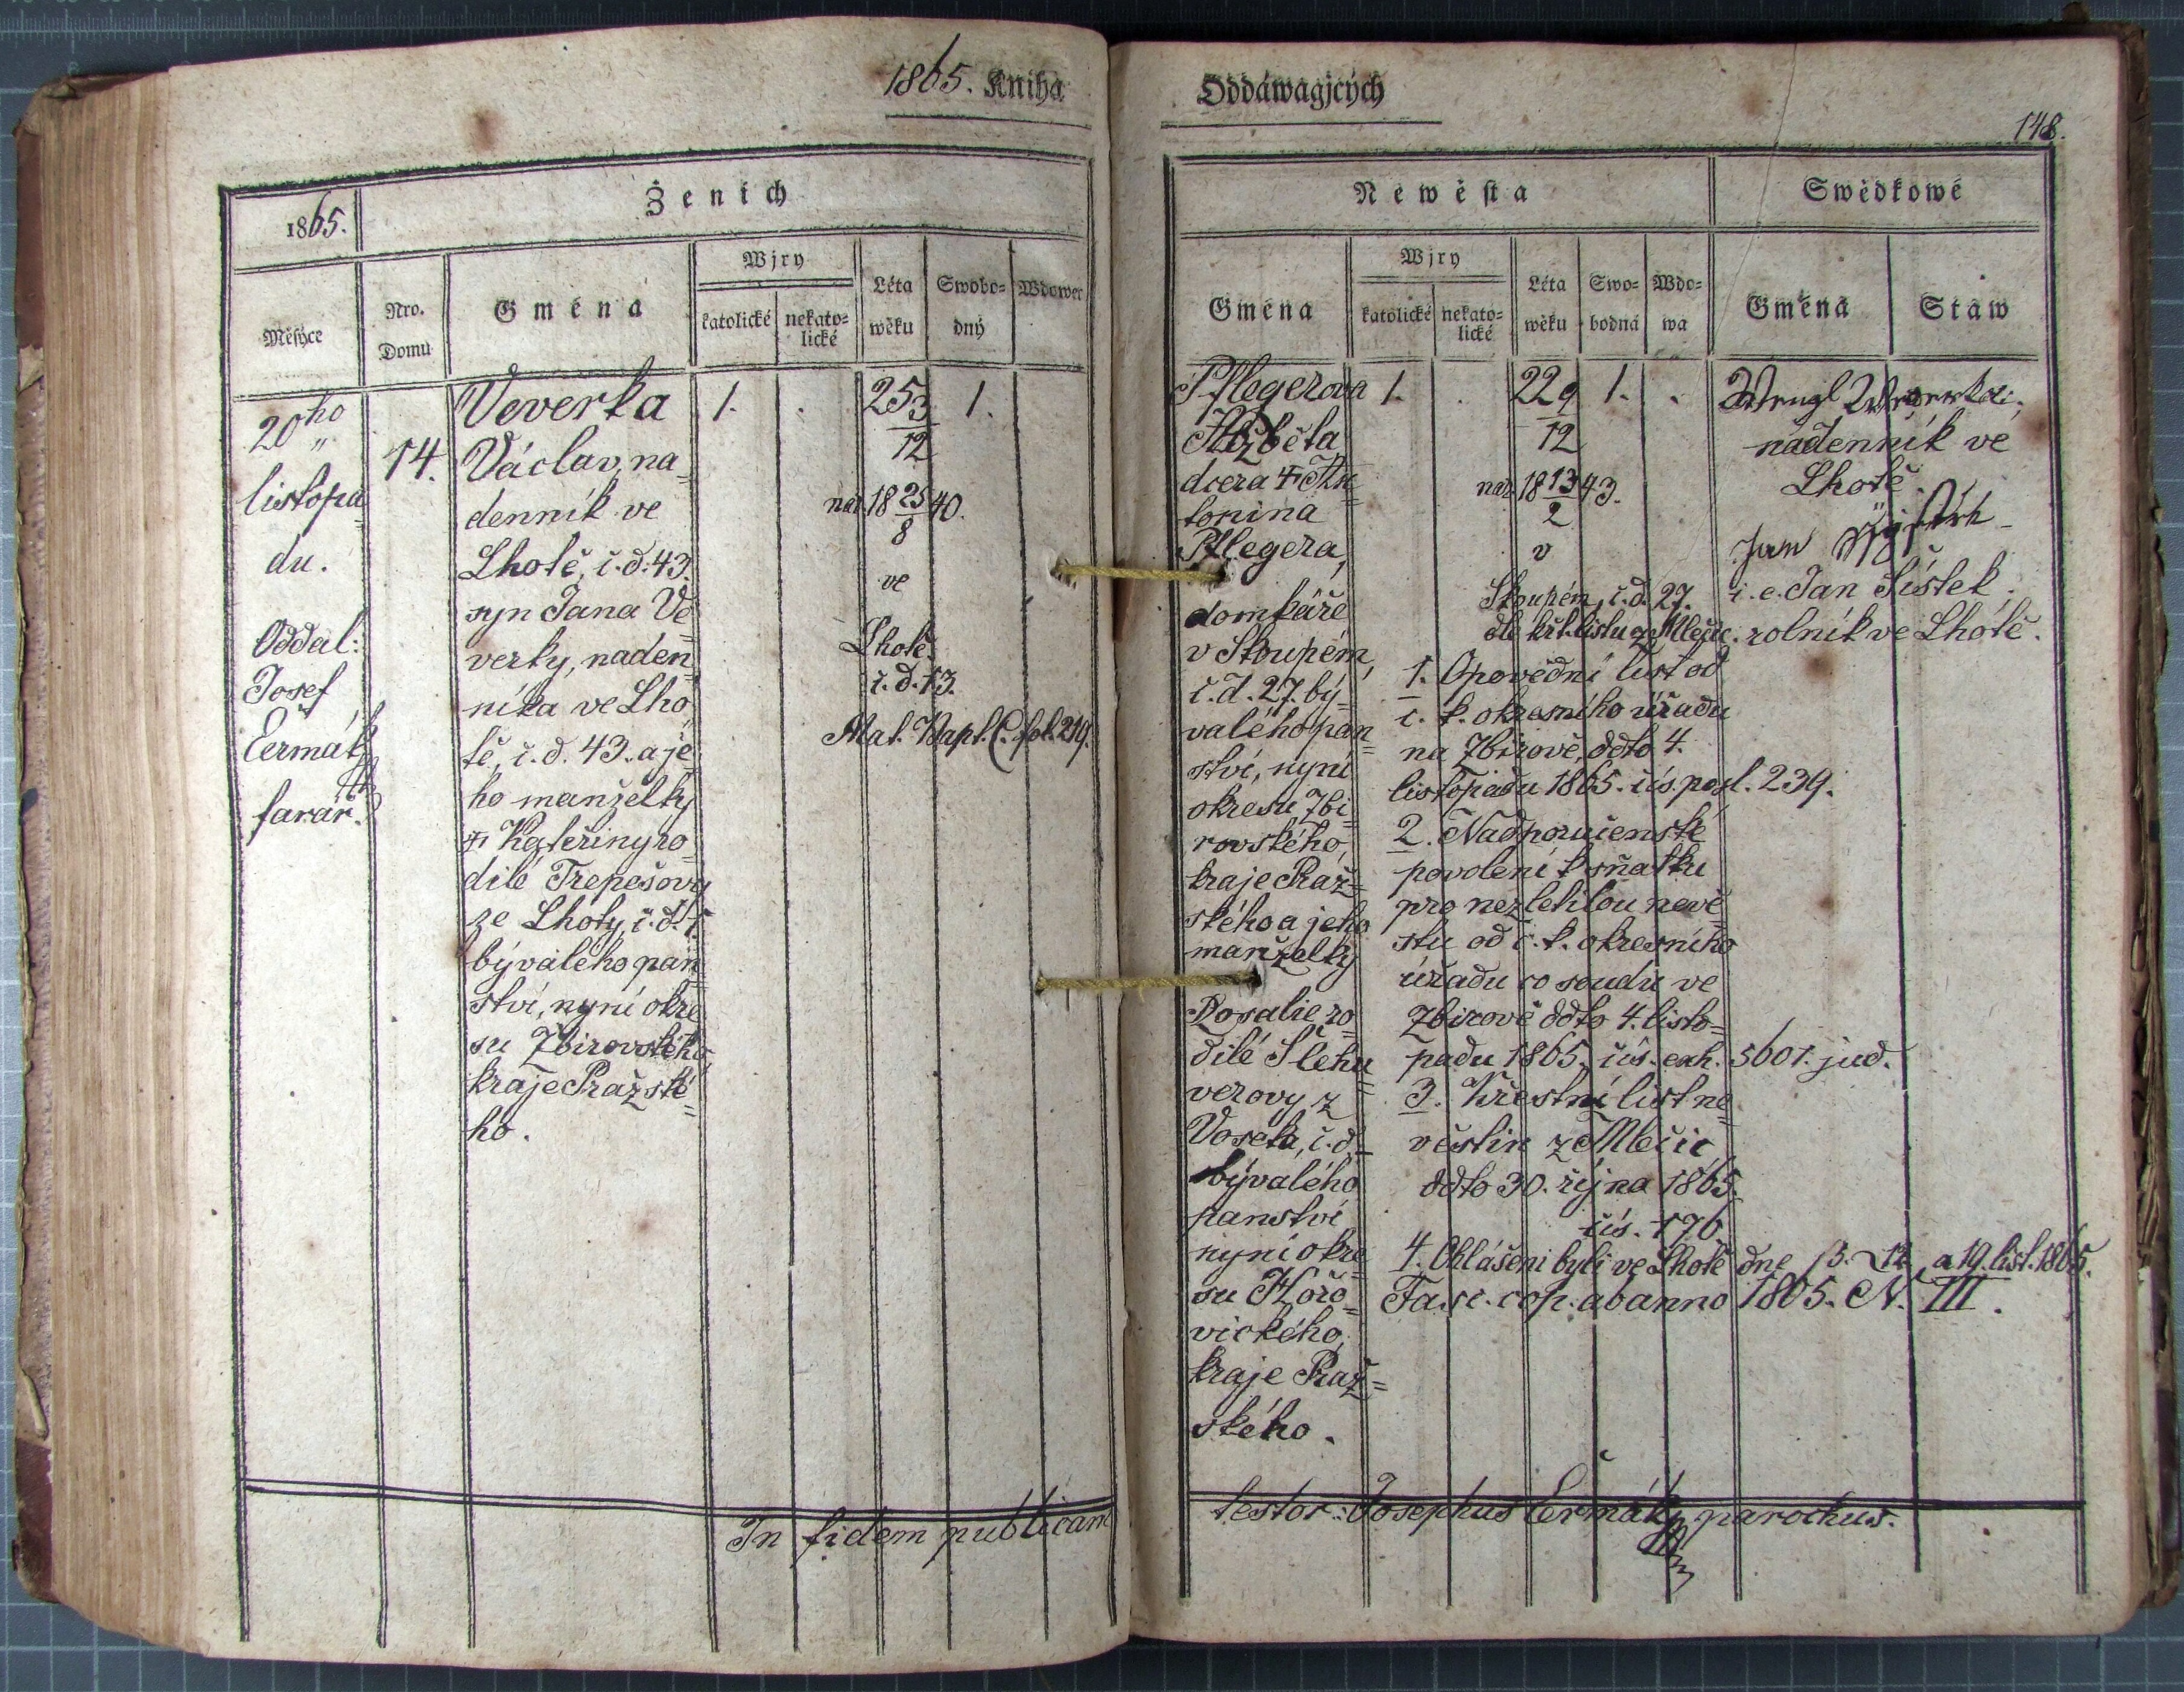 1865. Kniha
1865.
Ženich
Měsýce
Nro. Domu
Gména
Wjry
katolické
nekato=
lické
Léta
wěku
Swobo=
dný
Wdowec
20ho
"
listopa=
du.
Oddal:
Josef
Čermák
farář.
14.
Veverka
Václav, na=
denník ve
Lhotě, č.d. 43.
syn Jana Ve=
verky, naden=
níka ve Lho=
tě, č.d. 43. a je=
ho manželky
† Kateřiny ro=
dilé Trepešovy
ze Lhoty, č.d. 1.
bývalého pan=
ství, nyní okre=
su Zbirovského
kraje Pražské=
ho.
1.
.
25 3/12
1.
nar. 18 25/8 40.
ve
Lhotě
č.d. 13.
Mat. Bapt. C. fol. 219.
In fidem publicam
Oddáwagjcých
148.
Newěsta
Swědkowé
Gména
Wjry
katolické
nekato=
lické
Léta
wěku
Swo=
bodná
Wdo=
wa
Gména
Staw
Pflegerova
Alžběta
dcera † An=
tonina
Pflegera,
domkáře
v Stoupém,
č.d. 27. bý=
valého pan=
ství, nyní
okresu Zbi=
rovského,
kraje Praž=
ského a jeho
manželky
Rosalie ro=
dilé Šlehu=
verovy z
Voseka, č.d. –
bývalého
panství
nyní okre=
su Hořo=
vického,
kraje Praž=
ského.
1.
.
22 9/12
1.
.
nar. 18 13/2 43.
v
Stoupém, č.d. 27.
dle křt. listu z Mlečic.
nádenník ve
Lhotě.
Jan
i.e. Jan Šístek,
rolník ve Lhotě.
1. Opovědní list od
c. k. okresního úřadu
na Zbirově, ddto 4.
listopadu 1865. čís. posl. 239.
2. Nadporučenské
povolení k sňatku
pro nezletilou nevě=
stu od c. k. okresního
úřadu co soudu ve
Zbirově ddto 4. listo=
padu 1865. čís. exh. 5601. jud.
3. Křestní list ne=
věstin z Mlečic,
ddto 30. října 1865.
čís. 176
4. Ohlášeni byli ve Lhotě dne 5. 12. a 19. list. 1865.
Fasc. cop. ab anno 1865. N. III.
testor: Josephus Čermák, parochus.